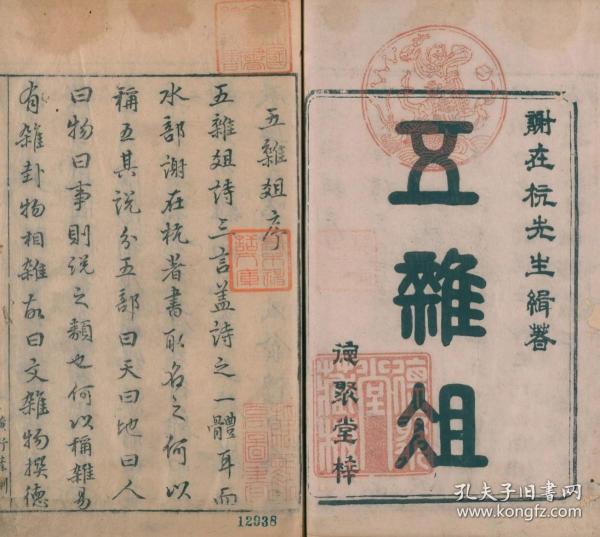 謝在杭先生緝著
五雜俎
德聚堂梓
五雜俎序
五雜俎詩三言蓋詩之一體耳而
水部謝在杭著書取名之何以
稱五其說分五部曰天曰地曰人
曰物曰事則說之類也何以稱雜易
有雜卦物相雜故曰文雜物撰德
12938
孔夫子旧书网
www.kongfz.com